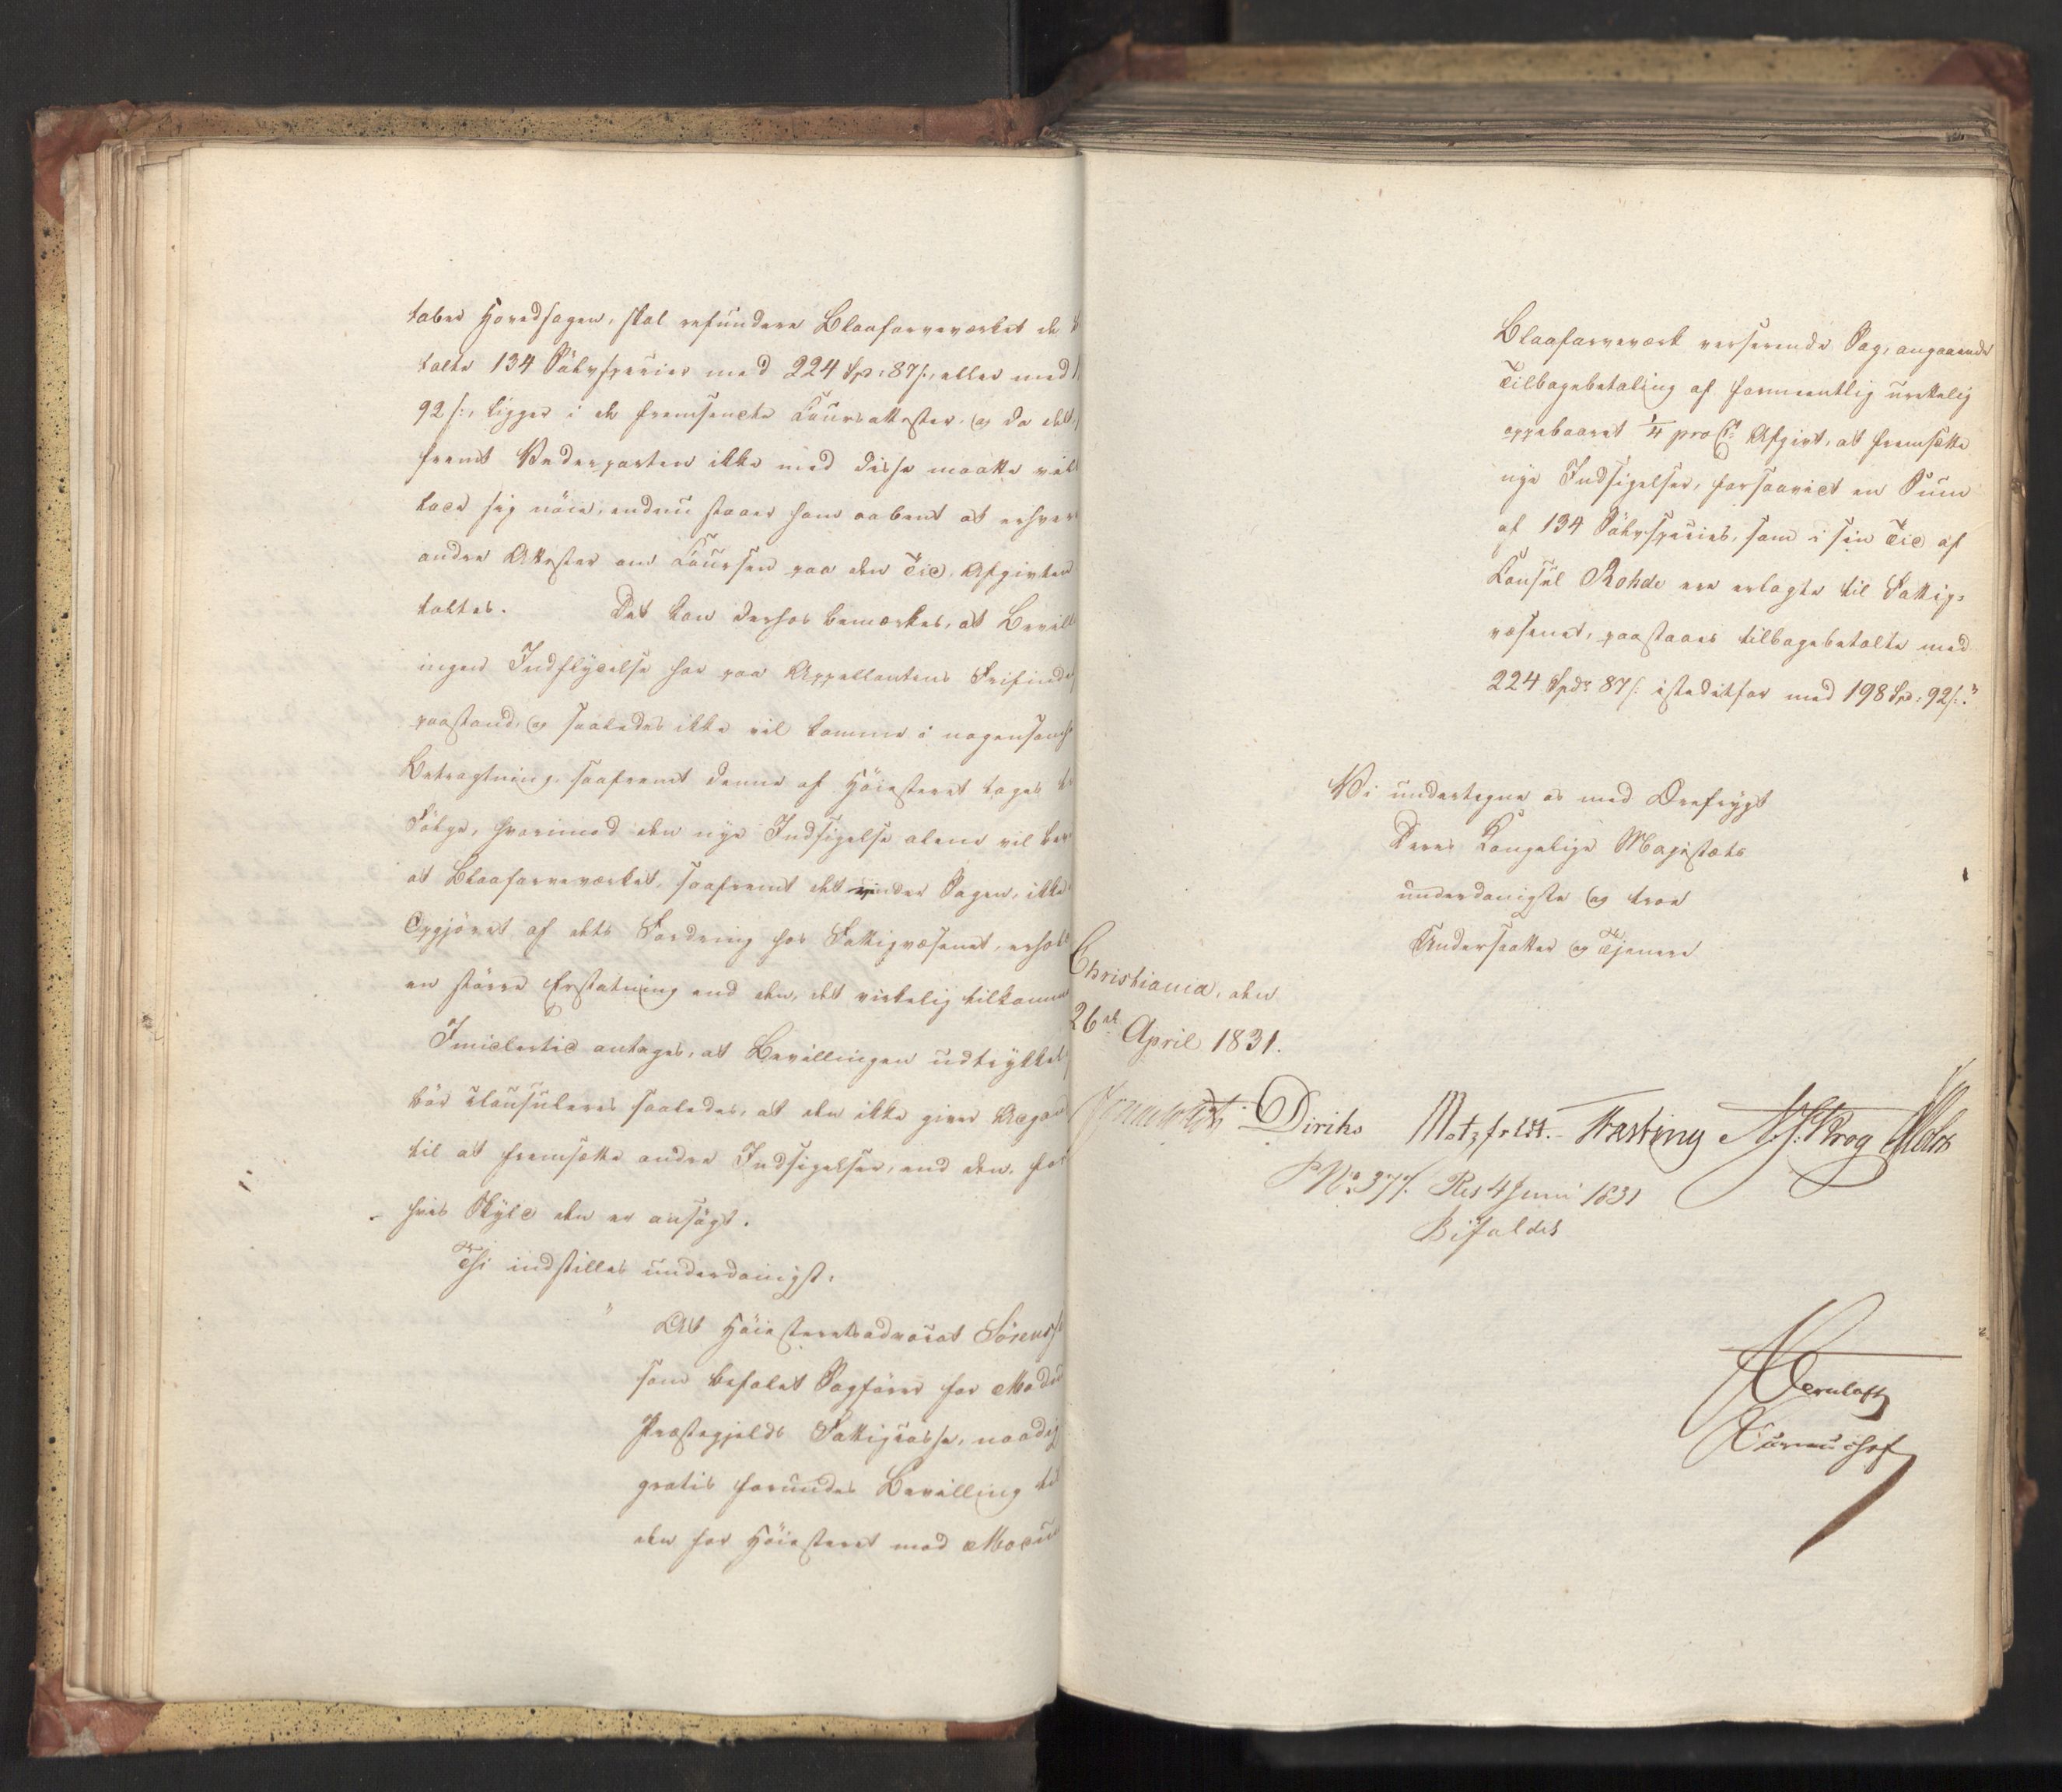 taber Hovedsagen, skal refundere Blaafarveværket de
talte 134 Sölvspecies med 224 Sp: 87 s:, eller med
92 s:, ligger i de fremsendte Coursattester, og da det,
fremt Vederparten ikke med disse maatte vil
lade sig nöie, endnu staaer ham aabent at erhver
andre Attester om Coursen paa den Tid, Afgivten
taltes. Det kan derhos bemærkes, at Bevill
ingen Indflydelse har paa Appellantens Frifinde
paastand, og saaledes ikke vil komme i nogensomh
Betragtning, saafremt denne af Höiesteret tages
Fölge, hvorimod den nye Indsigelse alene vil bev
at Blaafarveværket, saafremt det vinder Sagen, ikke
Opgjöret af dets Fordring hos Fattigvæsenet, erhol
en större Erstatning end den, det virkelig tilkomme
Imidlertid antages, at Bevillingen udtrykkel
bör clausuleres saaledes, at den ikke giver Adgan
til at fremsætte andre Indsigelser, end den, for
hvis Skyld den er ansögt.
Thi indstilles underdanigst:
" At Höiesteretsadvocat Sörenss
som befalet Sagförer for Modu
Præstegjelds Fattigcasse, naadig
gratis forundes Bevilling til
den for Höiesteret mod Modu
Blaafarveværk verserende Sag, angaaende
Tilbagebetaling af formeentlig urettelig
oppebaaret 1/4 pro Ct Afgivt, at fremsætte
nye Indsigelser, forsaavidt en Sum
af 134 Sölvspecies, som i sin Tid af
Consul Rohde ere erlagte til Fattig-
væsenet, paastaaes tilbagebetalte med
224 Spdr 87 s: istedetfor med 198 Sp: 92 s:."
Vi undertegne os med Ærefrygt
Deres Kongelige Majestæts
underdanigste og troe
Undersaatter og Tjenere
Christiania, den
26de April 1831.
Diriks Motzfeldt. Fasting
No. 377. Res 4 Juni 1831
Bifaldes